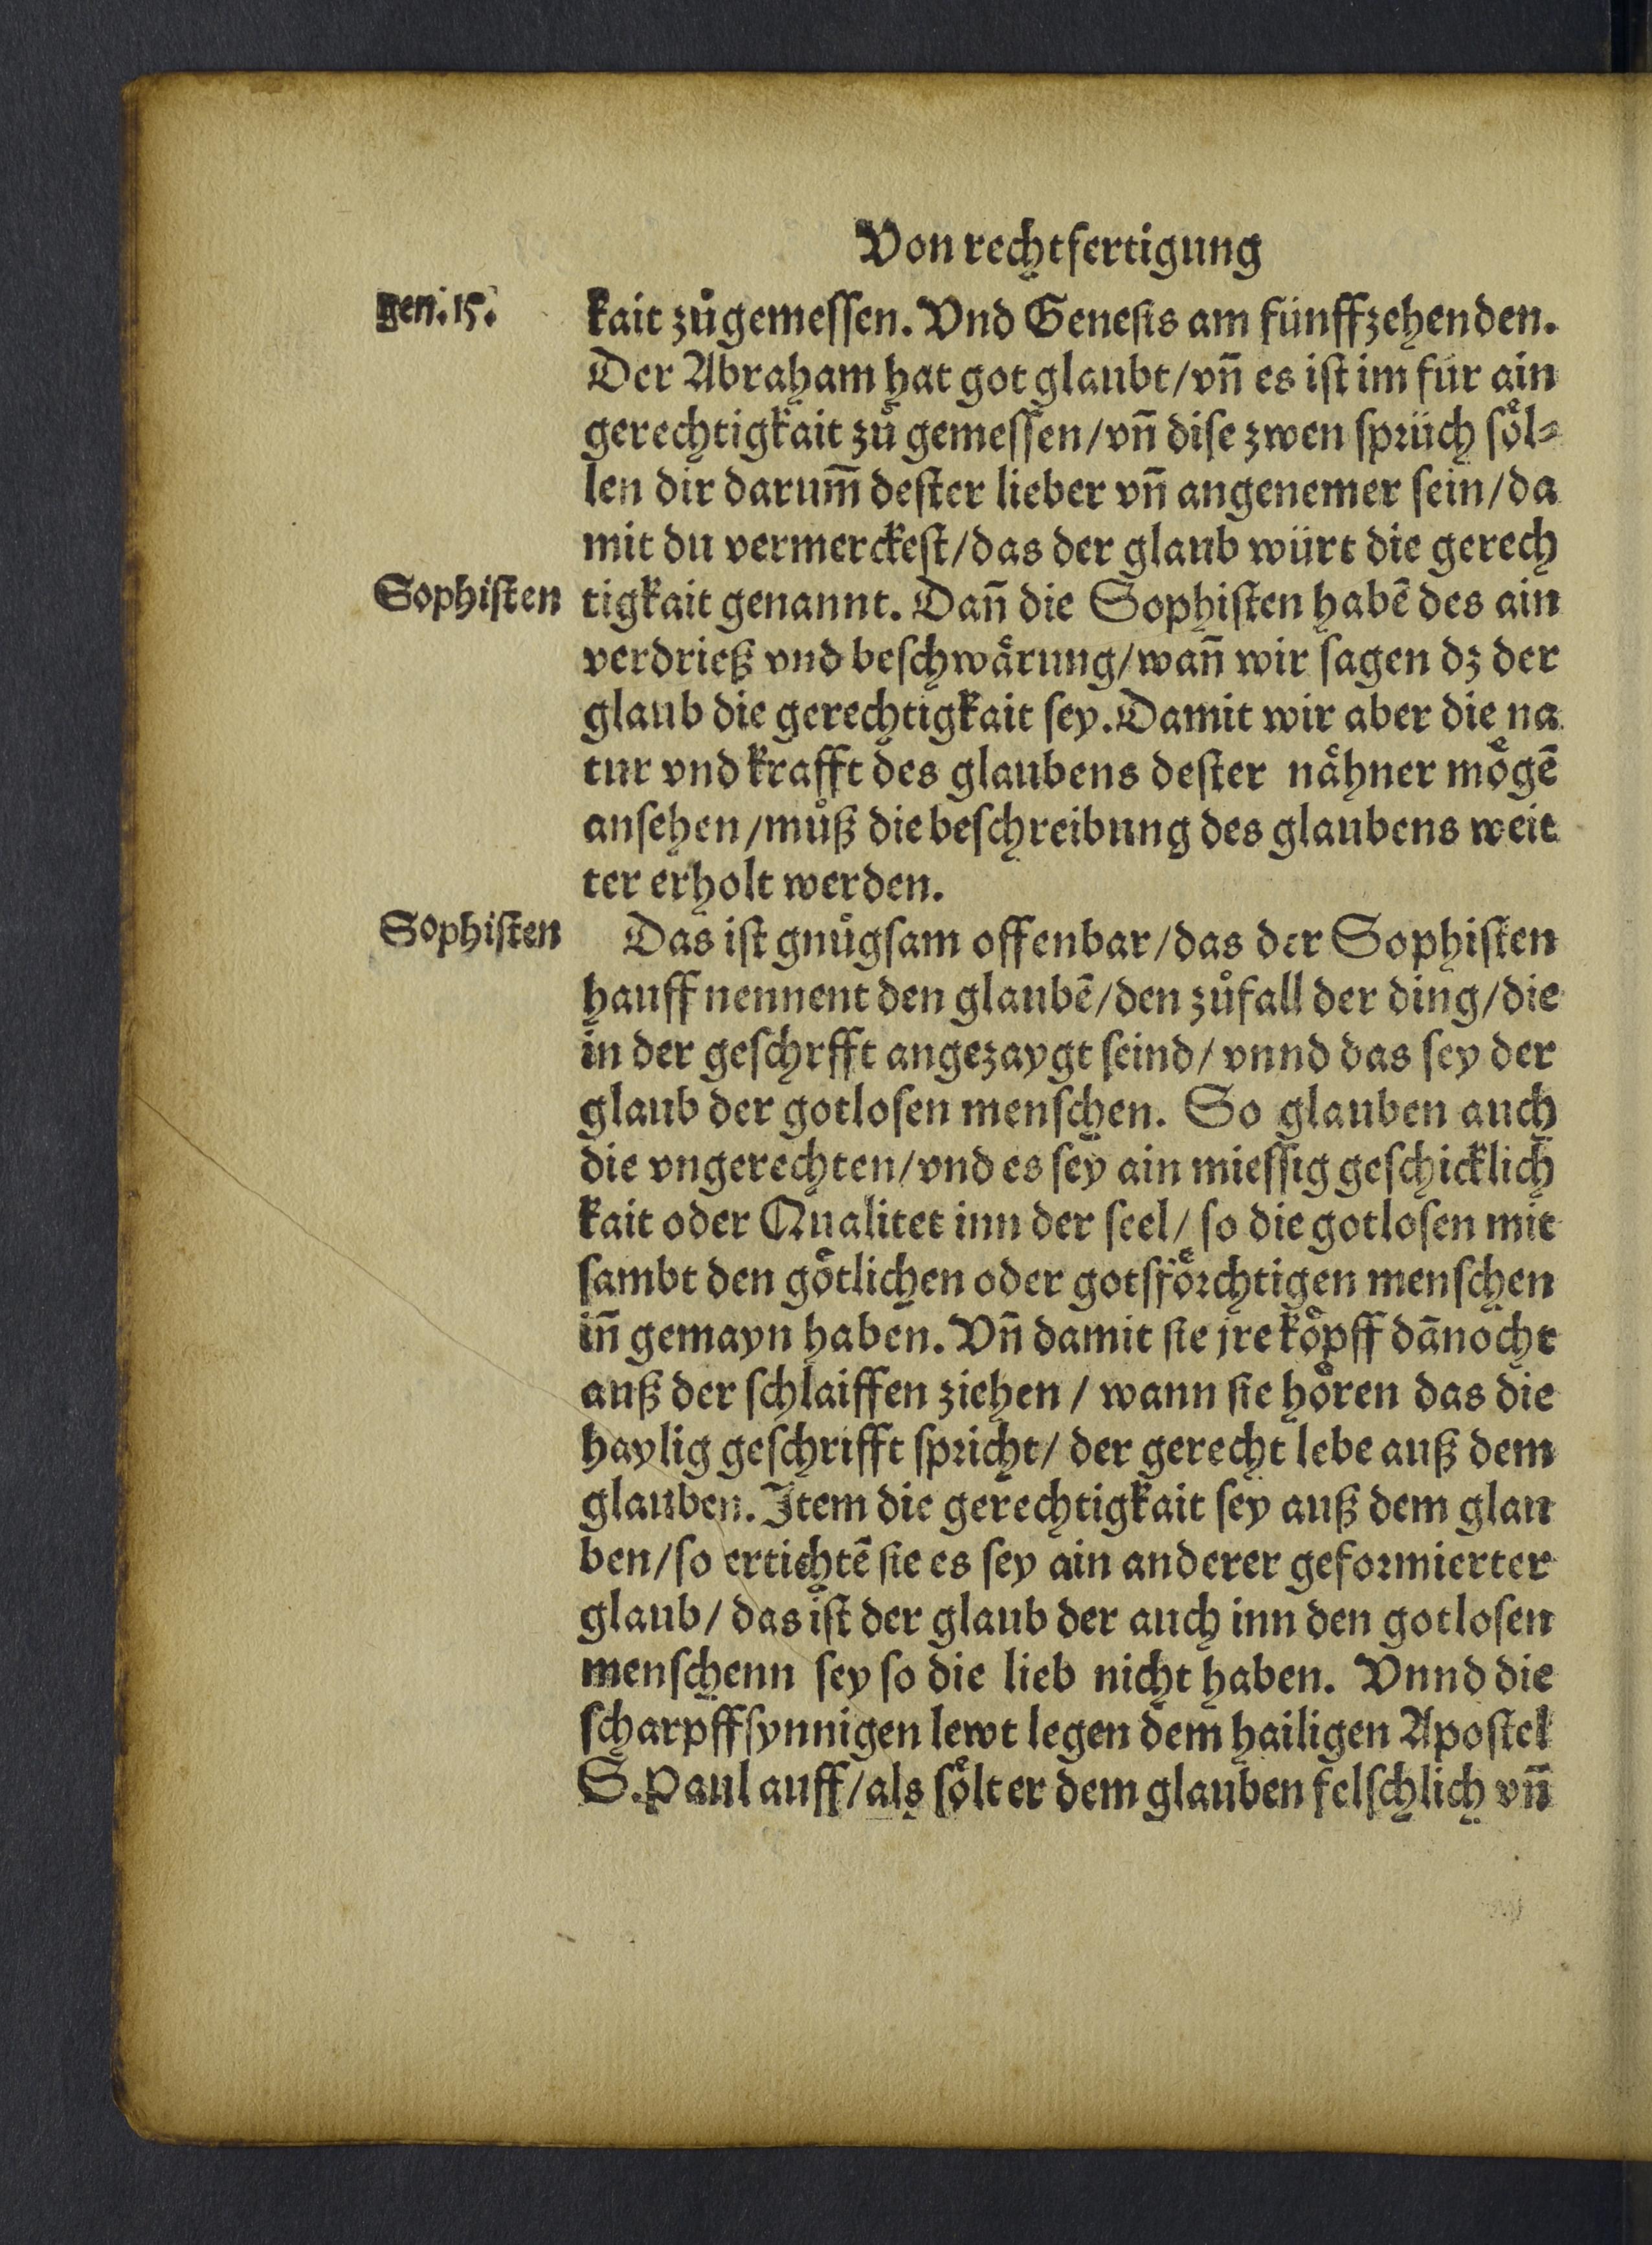 Von rechtfertigung
gen. 15.
kait zůgemeſſen. Vnd Geneſis am fünffzehenden.
Der Abraham hat got glaubt/vn̄ es iſt im für ain
gerechtigkait zů gemeſſen/vn̄ diſe zwen ſprüch ſoͤl⸗
len dir darum̄ deſter lieber vn̄ angenemer ſein/da
mit du vermerckeſt/das der glaub würt die gerech
Sophiſten
tigkait genannt. Dan̄ die Sophiſten habē des ain
verdrieß vnd beſchwaͤrung/wan̄ wir ſagen dz der
glaub die gerechtigkait ſey. Damit wir aber die na
tur vnd krafft des glaubens deſter naͤhner moͤgē
anſehen/můß die beſchreibung des glaubens weit
ter erholt werden.
Sophiſten
Das iſt gnůgſam offenbar/das der Sophiſten
hauff nennent den glaubē/den zůfall der ding/die
in der geſchrfft angezaygt ſeind/ vnnd das ſey der
glaub der gotloſen menſchen. So glauben auch
die vngerechten/vnd es ſey ain mieſſig geſchicklich
kait oder Qualitet inn der ſeel/ ſo die gotloſen mit
ſambt den goͤtlichen oder gotsfoͤrchtigen menſchen
in̄ gemayn haben. Vn̄ damit ſie jre koͤpff dānocht
auß der ſchlaiffen ziehen / wann ſie hoͤren das die
haylig geſchrifft ſpricht/ der gerecht lebe auß dem
glauben. Item die gerechtigkait ſey auß dem glau
ben/ſo ertichtē ſie es ſey ain anderer geformierter
glaub/ das iſt der glaub der auch inn den gotloſen
menſchenn ſey ſo die lieb nicht haben. Vnnd die
ſcharpffſynnigen lewt legen dem hailigen Apoſtel
S. Paul auff/als ſoͤlt er dem glauben felſchlich vn̄